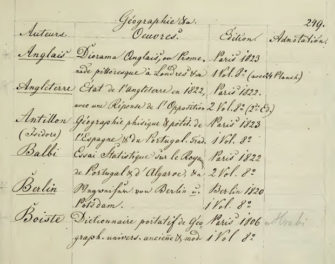 Géographie &a
249.
Auteurs. Oeuvres. Edition. Adnotation.
Anglais Diorama Anglais, ou Prome- Paris 1823
nade pittoresque à Londres &a 1 Vol. 8º (avec Planch)
Angleterre Etat de l'Angleterre en 1822, Paris 1822.
avec une Réponse de l'Opposition 2 Vol. 8º (3e Ed.)
Antillon Géographie phisique & polit. de Paris 1823
(Isidore) l'Espagne & du Portugal. 1 Vol. 8º
Balbi Essai Statistique sur le Roya Paris 1822
de Portugal & d'Algarve &a 2 Vol. 8º
Berlin Wegweiser von Berlin u. Berlin 1820
Potsdam. 1 Vol. 8º
Boiste Dictionnaire portatif de Géo Paris 1806
graph. univers. ancienne & mod 1 Vol. 8º